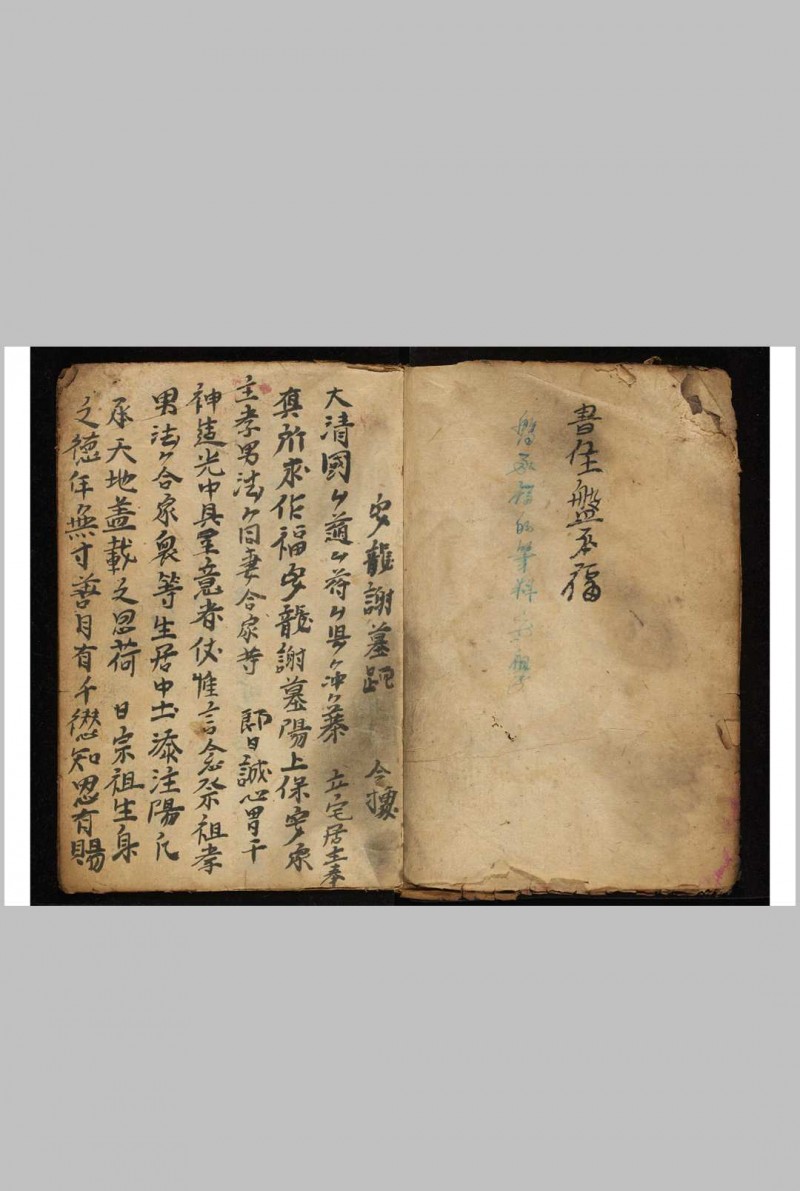 書住盤承福
盤承福的
安龍謝墓 今據
大清國ケ道ケ府ケ县ケ冲ケ墓 立宅居主奉
真所求作福安龍謝墓陽上保安家
主孝男法ケ同妻合家等 即日誠心冒干
神造光中具呈意者伏惟言念祭祖孝
男法ケ合家衆等生居中土添注陽凡
承天地盖載之恩荷 日宗祖生身
之德年無寸善月有千愆知恩有賜